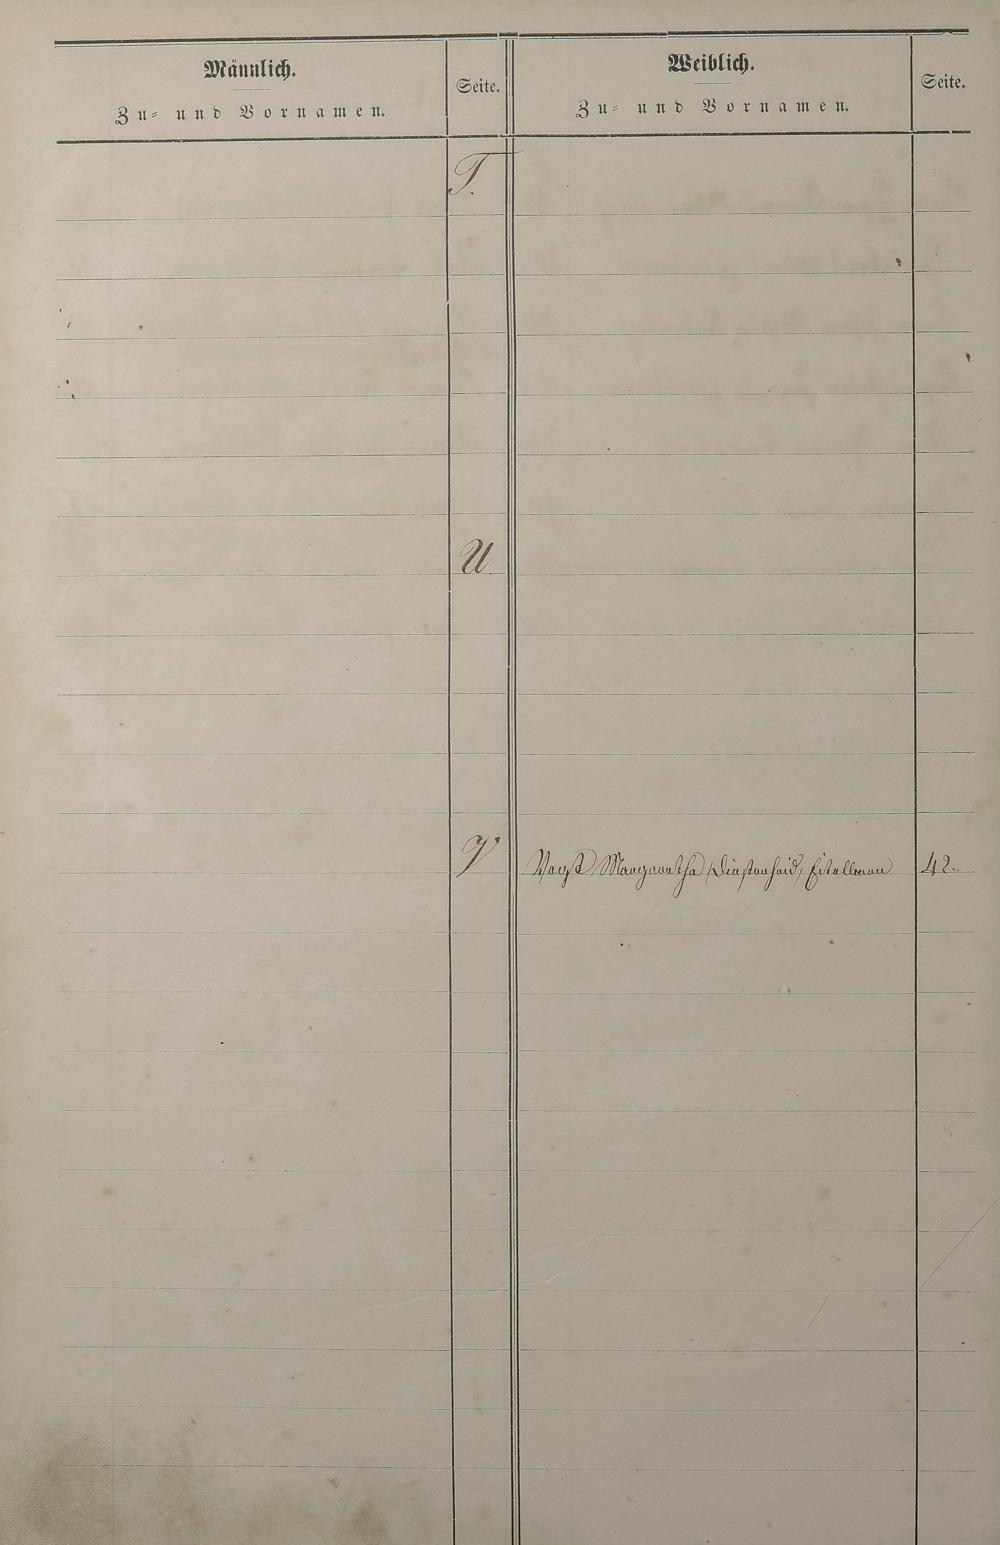 Männlich.
Zu- und Vornamen.
Seite.
Weiblich.
Zu- und Vornamen.
Seite.
T.
U.
V
Vogt Margaretha Eitelborn 42.